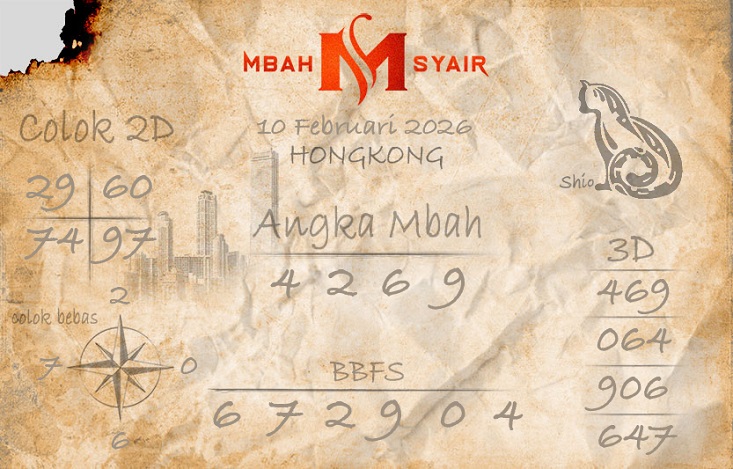 MBAH M SYAIR
10 Februari 2026
HONGKONG
Colok 2D
29 60
74 97
Shio
Angka Mbah
4 2 6 9
3D
469
064
906
647
colok bebas
2
7 0
6
BBFS
6 7 2 9 0 4